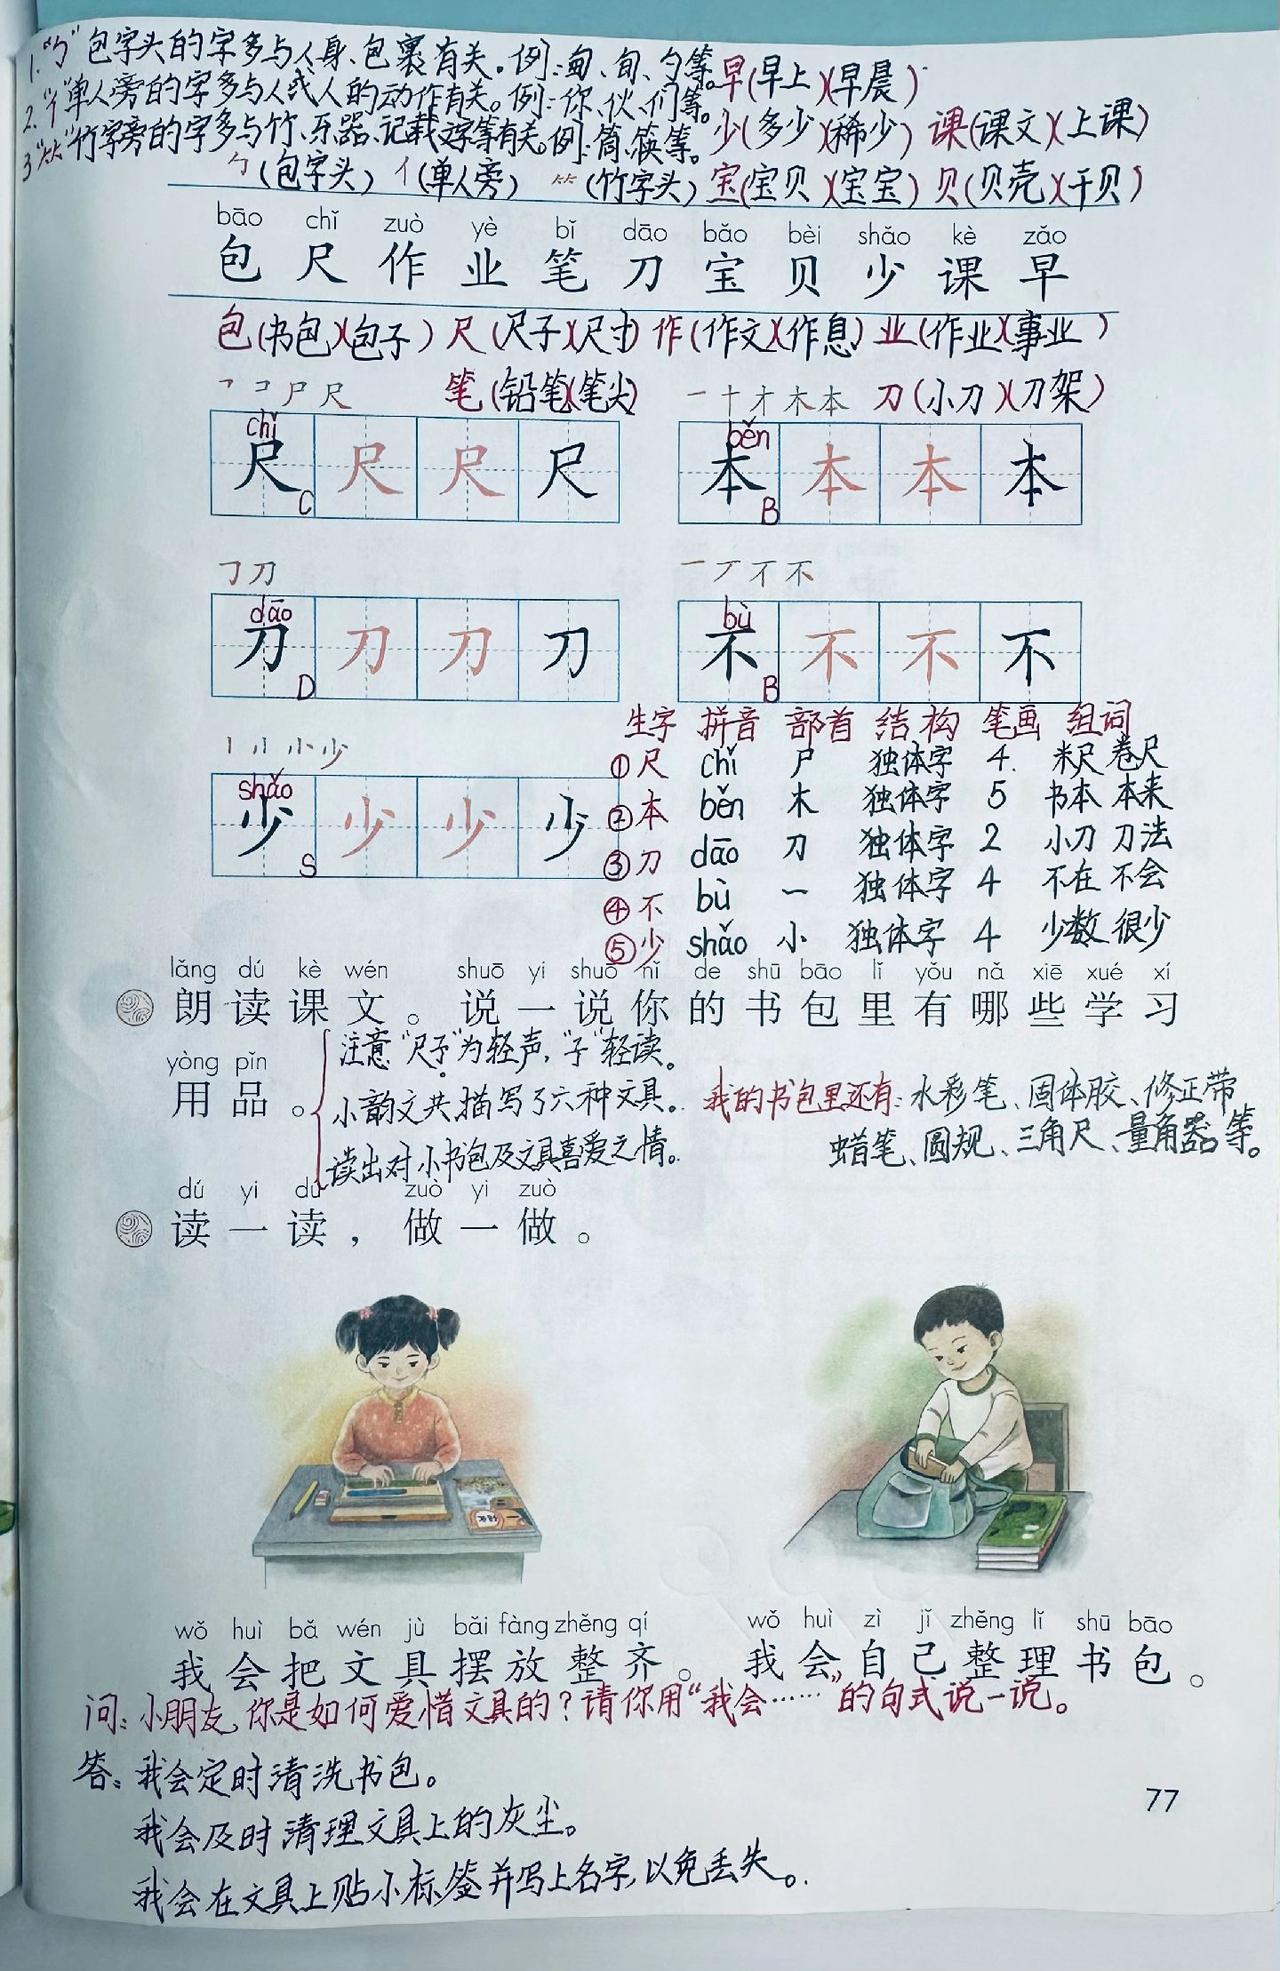 1."勹"包字头的字多与人身、包裹有关。例:匍、旬、勺等。
早(早上)(早晨)
2."亻"单人旁的字多与人或人的动作有关。例:你、伙、们等。
少(多少)(稀少) 课(课文)(上课)
3."⺮"竹字旁的字多与竹、乐器、记载文字等有关。例:筒、筷等。
勹(包字头) 亻(单人旁) ⺮(竹字头) 宝(宝贝)(宝宝) 贝(贝壳)(干贝)
bāo chǐ zuò yè bǐ dāo bǎo bèi shǎo kè zǎo
包 尺 作 业 笔 刀 宝 贝 少 课 早
包(书包)(包子) 尺(尺子)(尺寸) 作(作文)(作息) 业(作业)(事业)
尸 尺 笔(铅笔)(笔尖) 一 十 才 木 本 刀(小刀)(刀架)
chǐ běn
尺 尺 尺 尺 本 本 本 本
C B
刀 一 丆 不
dāo bù
刀 刀 刀 刀 不 不 不 不
D B
小 少
shǎo
少 少 少 少
S
生字 拼音 部首 结构 笔画 组词
①尺 chǐ 尸 独体字 4 米尺 卷尺
②本 běn 木 独体字 5 书本 本来
③刀 dāo 刀 独体字 2 小刀 刀法
④不 bù 一 独体字 4 不在 不会
⑤少 shǎo 小 独体字 4 少数 很少
lǎng dú kè wén shuō yi shuō nǐ de shū bāo lǐ yǒu nǎ xiē xué xí
朗读课文。说一说你的书包里有哪些学习
yòng pǐn
用品。
注意"尺子"为轻声,"子"轻读。
小韵文共描写了六种文具。
读出对小书包及文具喜爱之情。
我的书包里还有:水彩笔、固体胶、修正带
蜡笔、圆规、三角尺、量角器等。
dú yi dú zuò yi zuò
读一读,做一做。
wǒ huì bǎ wén jù bǎi fàng zhěng qí wǒ huì zì jǐ zhěng lǐ shū bāo
我会把文具摆放整齐。 我会自己整理书包。
问:小朋友,你是如何爱惜文具的?请你用"我会……"的句式说一说。
答:我会定时清洗书包。
我会及时清理文具上的灰尘。
我会在文具上贴小标签并写上名字,以免丢失。
77